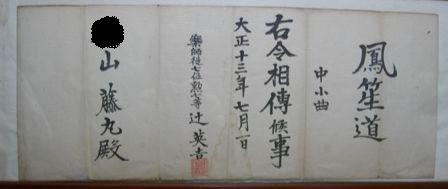 鳳笙道
中小曲
右令相傳候事
大正十三年七月一日
樂師従七位勲八等辻英吉
山藤丸殿